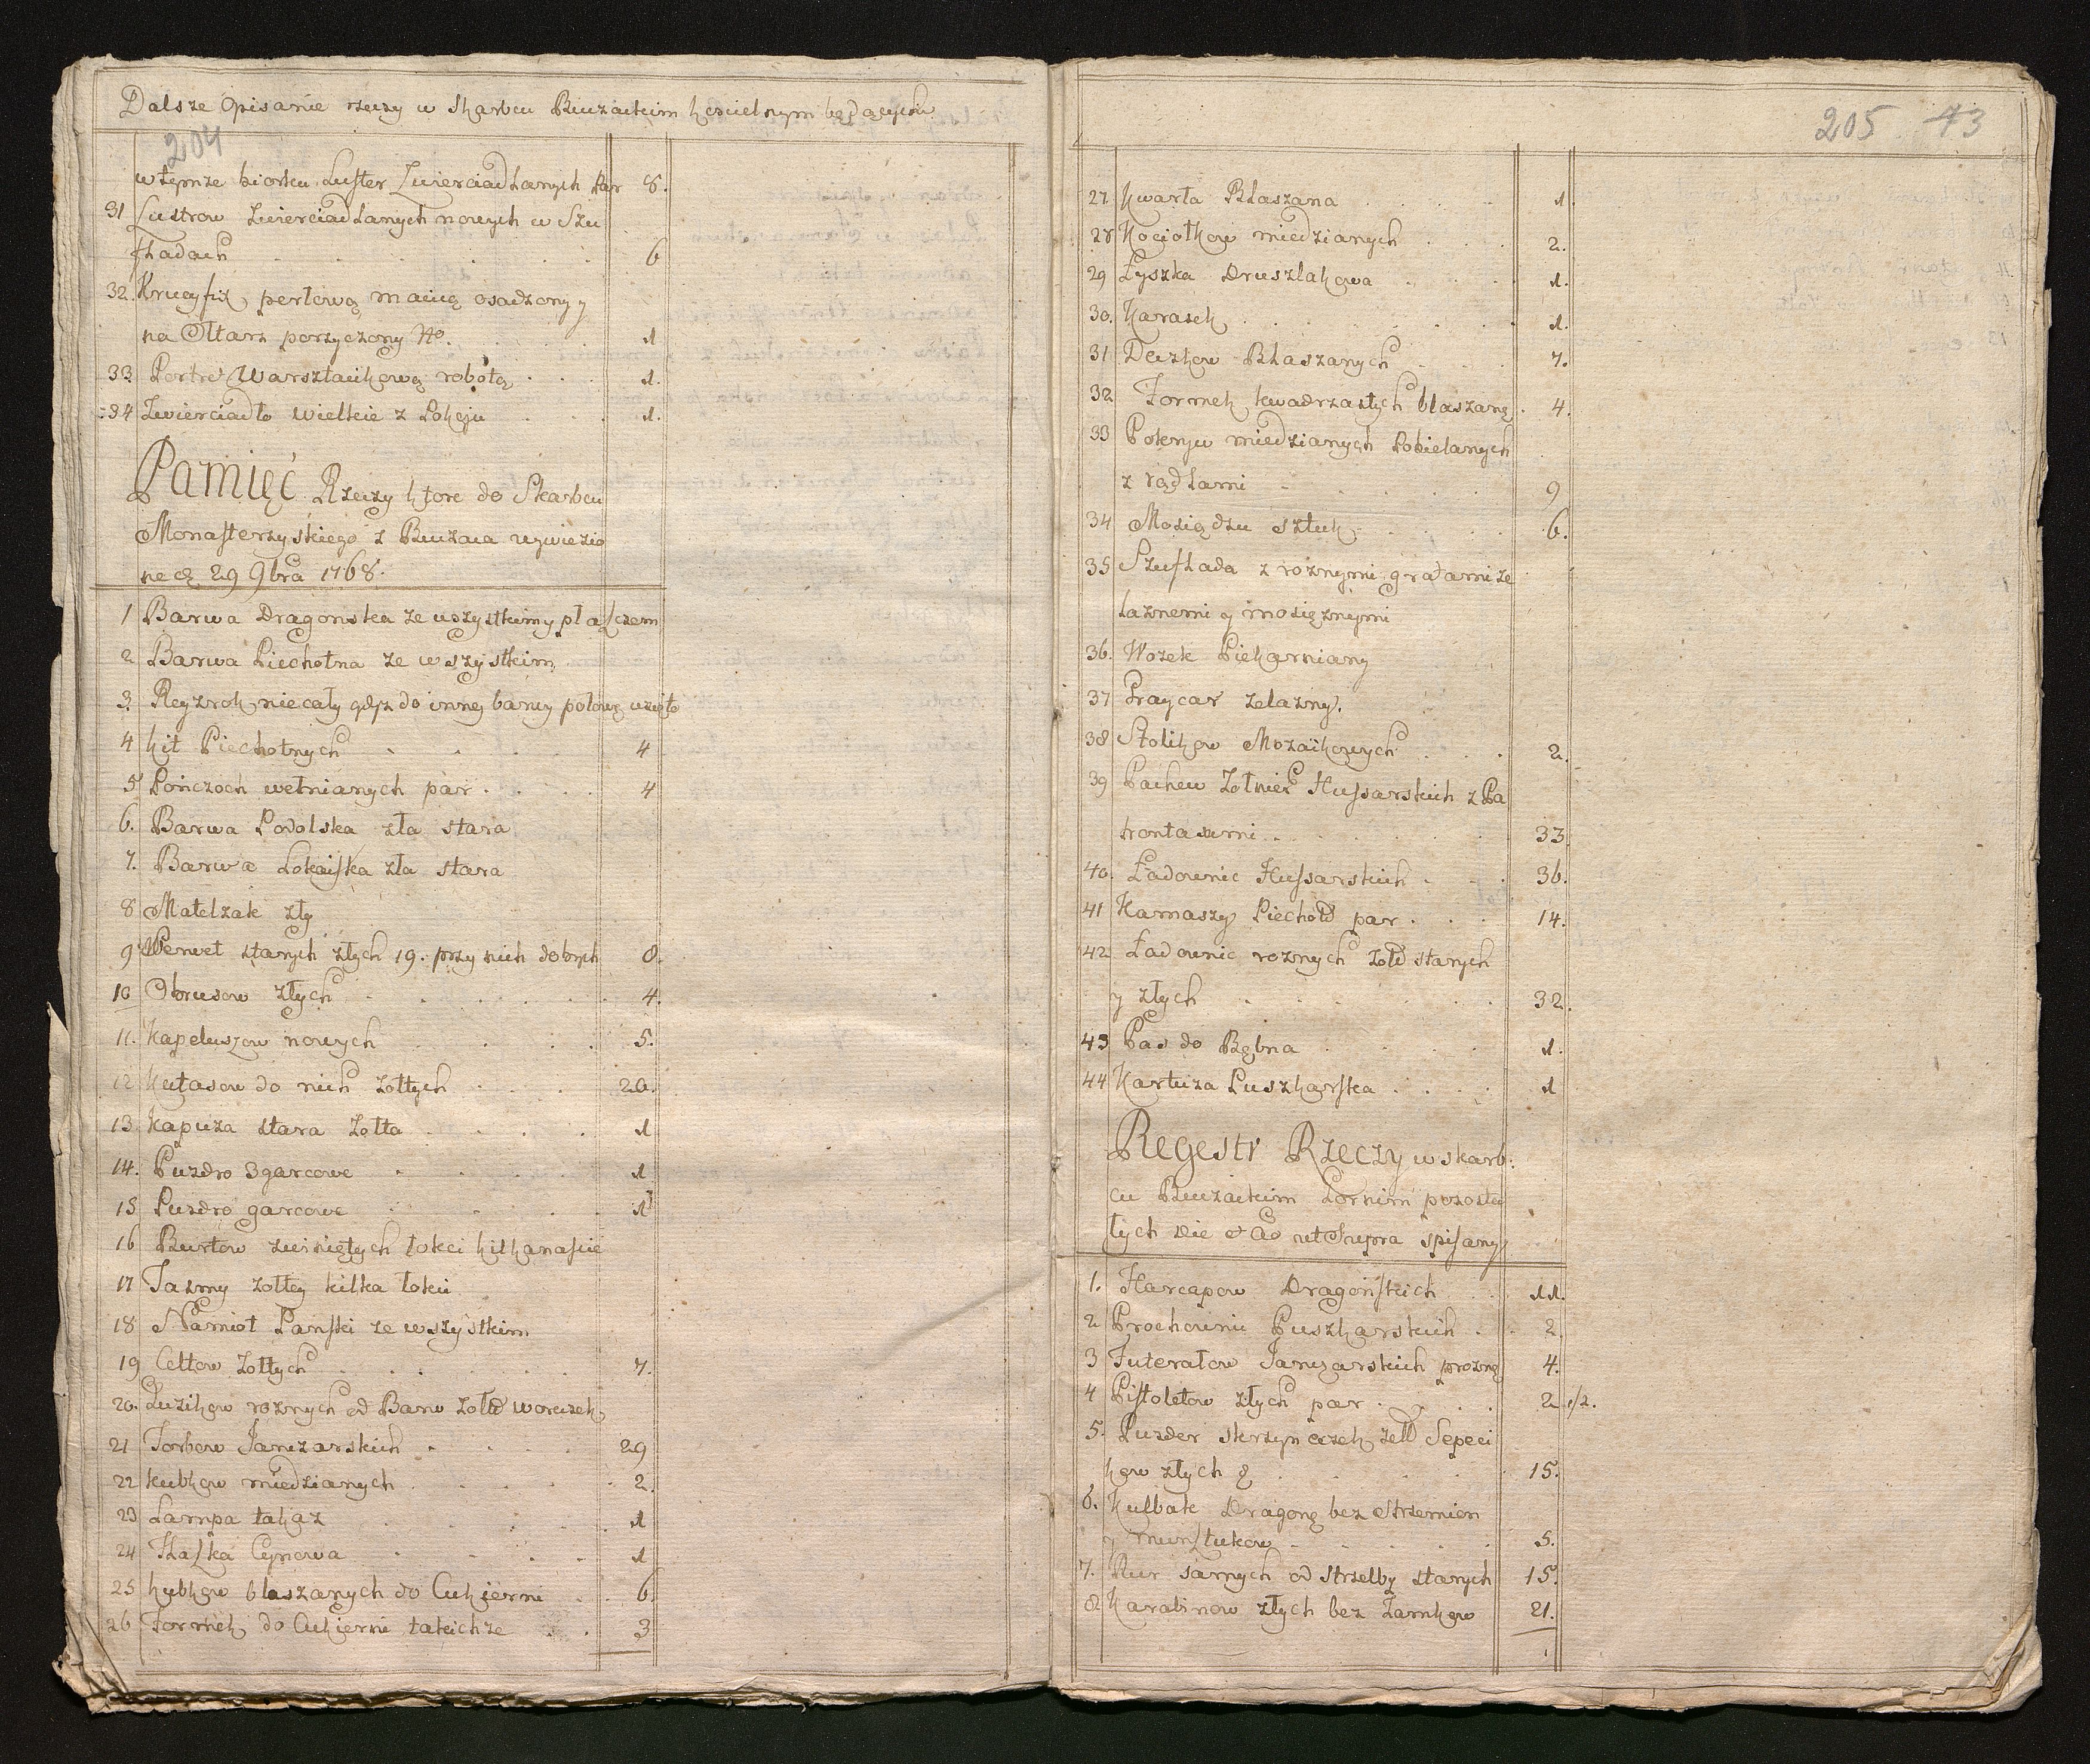 Dalsze Opisanie rzeczy w Skarbcu Buczackim koscielnym będących
204
w teymże biorku Luster Zwierciadlanych Par 8.
31 Lustrow Zwierciadlanych nowych w Szu
fladach 6
32. Krucyfix perłową macicą osadzony y
na Ołtarz porzyczony No. 1
33. Portret Warsztatikową robotą 1.
34 Zwierciadło wielkie z Pokoju 1.
Pamięć Rzeczy ktore do Skarbcu
Monasterzyskiego z Buczacza wywiezio
ne d 29 9bra 1768.
1 Barwa Dragonska ze wszystkimy płaszczem
2 Barwa Piechotna ze wszystkim
3. Reyzrok niecały gdyz do inney barwy połowę wzięto
4 Kit Piechotnych 4
5 Pończoch wełnianych par 4
6. Barwa Podolska zła stara
7. Barwa Lokaiska zła stara
8 Matelzak zły
9 Serwet starych złych 19. przy nich dobrych 8.
10 Obrusow złych 4.
11. Kapeluszow nowych 5.
12 Kutasow do nich Zołtych 20.
13 Kapuza stara Zołta 1
14. Puzdro 3garcowe 1
15 Puzdro garcowe 1
16 Burtow zwiniętych łokci kilkanascie
17 Tasmy zołtey kilka łokci
18 Namiot Panski ze wszystkim
19 Celtow Zołtych 7.
20. Guzikow roznych od Barw Zołd woreczek
21 Torbow Janczarskich 29
22 Kubkow miedzianych 2.
23 Lampa takaz 1
24 Flaska Cynowa 1
25 Kubkow blaszanych do Cukierni 6.
26 Formek do Cukierni takichze 3
205 43
27 Kwarta Blaszana 1.
28 Kociołkow miedzianych 2.
29 Łyszka Druszlakowa 1.
30. Karasek 1.
31 Deczkow Blaszanych 7.
32 Formek kwadrzastych blaszany 4.
33 Pokryw miedzianych Pobielanych
z rądlami 9
34 Mosiądzu sztuk 6.
35 Szuflada z roznymi gratami ze
laznemi y mosięznymi
36. Wozek Piekarniany
37 Praycar Zelazny.
38 Stolikow Mozaikowych 2.
39 Pachew Zołnier Hussarskich z Pa
trontaszmi 33.
40. Ładownic Hussarskich 36.
41 Kamaszy Piechotd par 14.
42 Ładownic roznych Zołd starych
y złych 32.
43 Pas do Bębna 1.
44 Kartuza Puszkarska 1
Regestr Rzeczy w skarb:
cu Buczackim Gornim pozosta
łych die et Ao ut Supra spisany
1. Harcapow Dragońskich 11.
2 Prochownic Puszkarskich 2.
3 Futerałow Janczarskich prozny 4.
4 Pistoletow złych par 2 1/2.
5. Puzder skrzyneczek Zeld Sepeci
kow złych 15.
6. Kulbak Dragony bez Strzemion
y munsztukow 5.
7. Rur samych od strzelby starych 15.
8. Karabinow złych bez Zamkow 21.